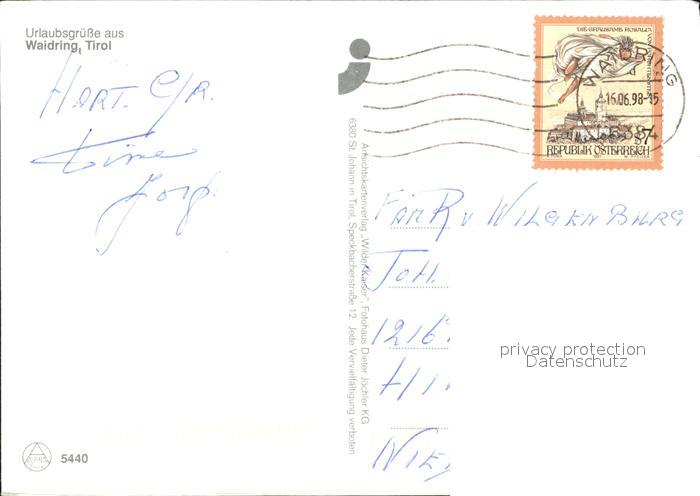 Urlaubsgrüße aus
Waidring, Tirol
HART. Gr.
Tine
Jorg.
DIE GRAUSAME ROSALIA
WAIDRING
16.06.98-15
6384
S 7
REPUBLIK ÖSTERREICH
Ansichtskartenverlag „Wilder Kaiser", Fotohaus Dieter Jöchler KG
6380 St. Johann in Tirol, Speckbacherstraße 12. Jede Vervielfältigung verboten
FAM R v WILGENBURG
JOH.
1216
HI
NIE
privacy protection
Datenschutz
5440